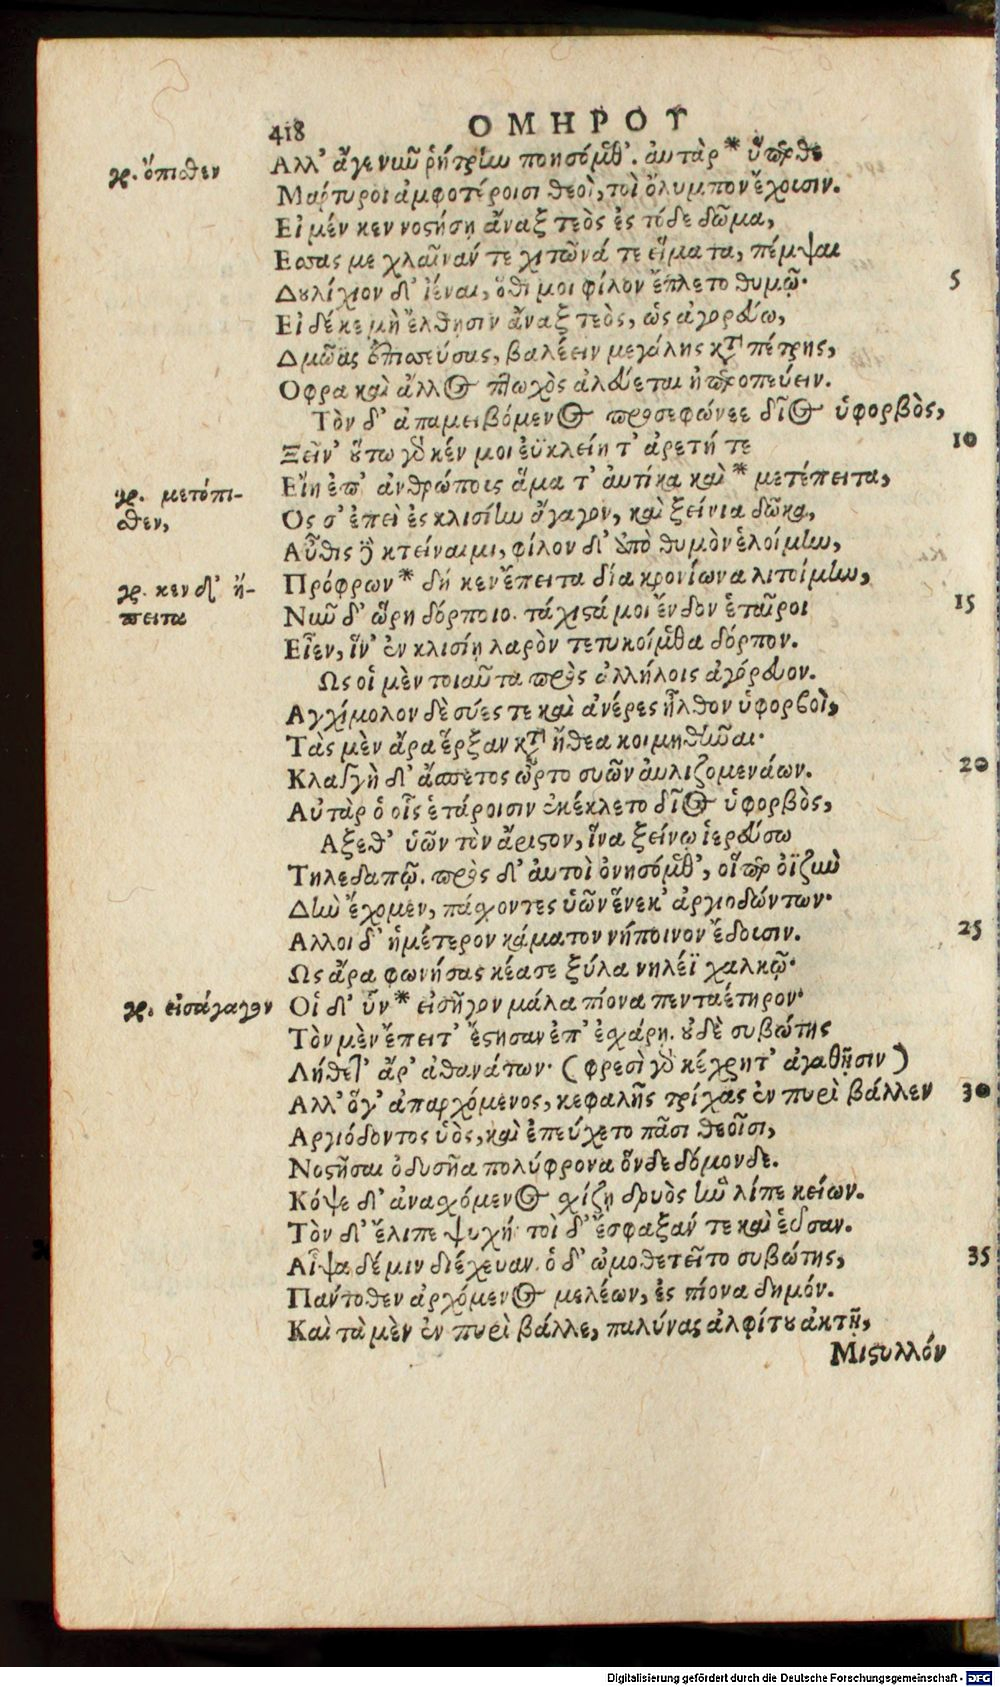 418 ΟΜΗΡΟΥ
γρ. ὄπισθεν
Αλλ' ἄγε νιῦ ῥήτρίω ποιησόμεθ'. ἀυτὰρ * ὕπερθε
Μάρτυροι ἀμφοτέροισι θεοὶ, τοὶ ὄλυμπον ἔχουσιν.
Εἰ μέν κεν νοστήσῃ ἄναξ τεὸς ἐς τόδε δῶμα,
Εσσας με χλαῖνάν τε χιτῶνά τε εἵματα, πέμψαι
Δουλίχιον δ' ἰέναι, ὅθι μοι φίλον ἔπλετο θυμῷ· 5
Εἰ δέ κε μὴ ἔλθησιν ἄναξ τεὸς, ὡς ἀγορεύω,
Δμῶας ἐπισσεύσας, βαλέειν μεγάλης κατὰ πέτρης,
Οφρα καὶ ἄλλος πτωχὸς ἀλεύεται ἠπεροπεύειν.
Τὸν δ' ἀπαμειβόμενος προσεφώνεε δῖος ὑφορβὸς,
Ξεῖν' οὕτω γάρ κέν μοι ἐϋκλείη τ' ἀρετή τε 10
Εἴη ἐπ' ἀνθρώποις ἅμα τ' ἀυτίκα καὶ * μετέπειτα,
γρ. μετόπι-
σθεν,
Ος σ' ἐπεὶ ἐς κλισίω ἄγαγον, καὶ ξείνια δῶκα,
Αὖθις δὲ κτείναιμι, φίλον δ' ἀπὸ θυμὸν ἑλοίμω,
Πρόφρων * δή κεν ἔπειτα δία κρονίωνα λιτοίμω,
γρ. κεν δ' ἤ-
πειτα
Νιῦ δ' ὥρη δόρποιο. τάχιστά μοι ἔνδον ἑταῖροι 15
Εἶεν, ἵν' ἐν κλισίῃ λαρὸν τετυκοίμεθα δόρπον.
Ως οἱ μὲν τοιαῦτα πρὸς ἀλλήλοις ἀγόρευον.
Αγχίμολον δὲ σύες τε καὶ ἀνέρες ἦλθον ὑφορβοὶ,
Τὰς μὲν ἄρα ἕρξαν κατὰ ἤθεα κοιμηθῆναι·
Κλαγγὴ δ' ἄσπετος ὦρτο συῶν ἀυλιζομενάων. 20
Αὐτὰρ ὁ οἷς ἑτάροισιν ἐκέκλετο δῖος ὑφορβὸς,
Αξεθ' ὑῶν τὸν ἄριστον, ἵνα ξείνῳ ἱερεύσω
Τηλεδαπῷ. πρὸς δ' ἀυτοὶ ὀνησόμεθ', οἵπερ ὀϊζιὺ
Διὼ ἔχομεν, πάσχοντες ὑῶν ἕνεκ' ἀργιοδώντων·
Αλλοι δ' ἡμέτερον κάματον νήποινον ἔδουσιν. 25
Ως ἄρα φωνήσας κέασε ξύλα νηλέϊ χαλκῷ·
γρ. εἰσάγαγον
Οἱ δ' ὗν * εἰσῆγον μάλα πίονα πενταέτηρον·
Τὸν μὲν ἔπειτ' ἔστησαν ἐπ' ἐσχάρῃ. οὐδὲ συβώτης
Λήθετ' ἄρ' ἀθανάτων· (φρεσὶ γὰρ κέχρητ' ἀγαθῇσιν)
Αλλ' ὅγ' ἀπαρχόμενος, κεφαλῆς τρίχας ἐν πυρὶ βάλλεν 30
Αργιόδοντος ὑὸς, καὶ ἐπεύχετο πᾶσι θεοῖσι,
Νοστῆσαι ὀδυσῆα πολύφρονα ὅνδε δόμονδε.
Κόψε δ' ἀνασχόμενος σχίζῃ δρυὸς ἣν λίπε κείων.
Τὸν δ' ἔλιπε ψυχή· τοὶ δ' ἔσφαξάν τε καὶ εὗσαν.
Αἶψα δέ μιν διέχευαν. ὁ δ' ὠμοθετεῖτο συβώτης, 35
Πάντοθεν ἀρχόμενος μελέων, ἐς πίονα δημόν.
Καὶ τὰ μὲν ἐν πυρὶ βάλλε, παλύνας ἀλφίτου ἀκτῇ,
Μίστυλλόν
Digitalisierung gefördert durch die Deutsche Forschungsgemeinschaft - DFG